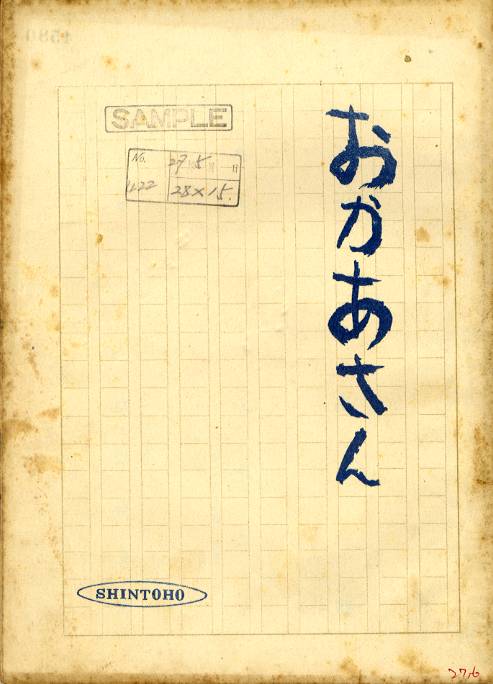 おかあさん
SAMPLE
No. 27 5
422 28×15.
SHINTOHO
27.6